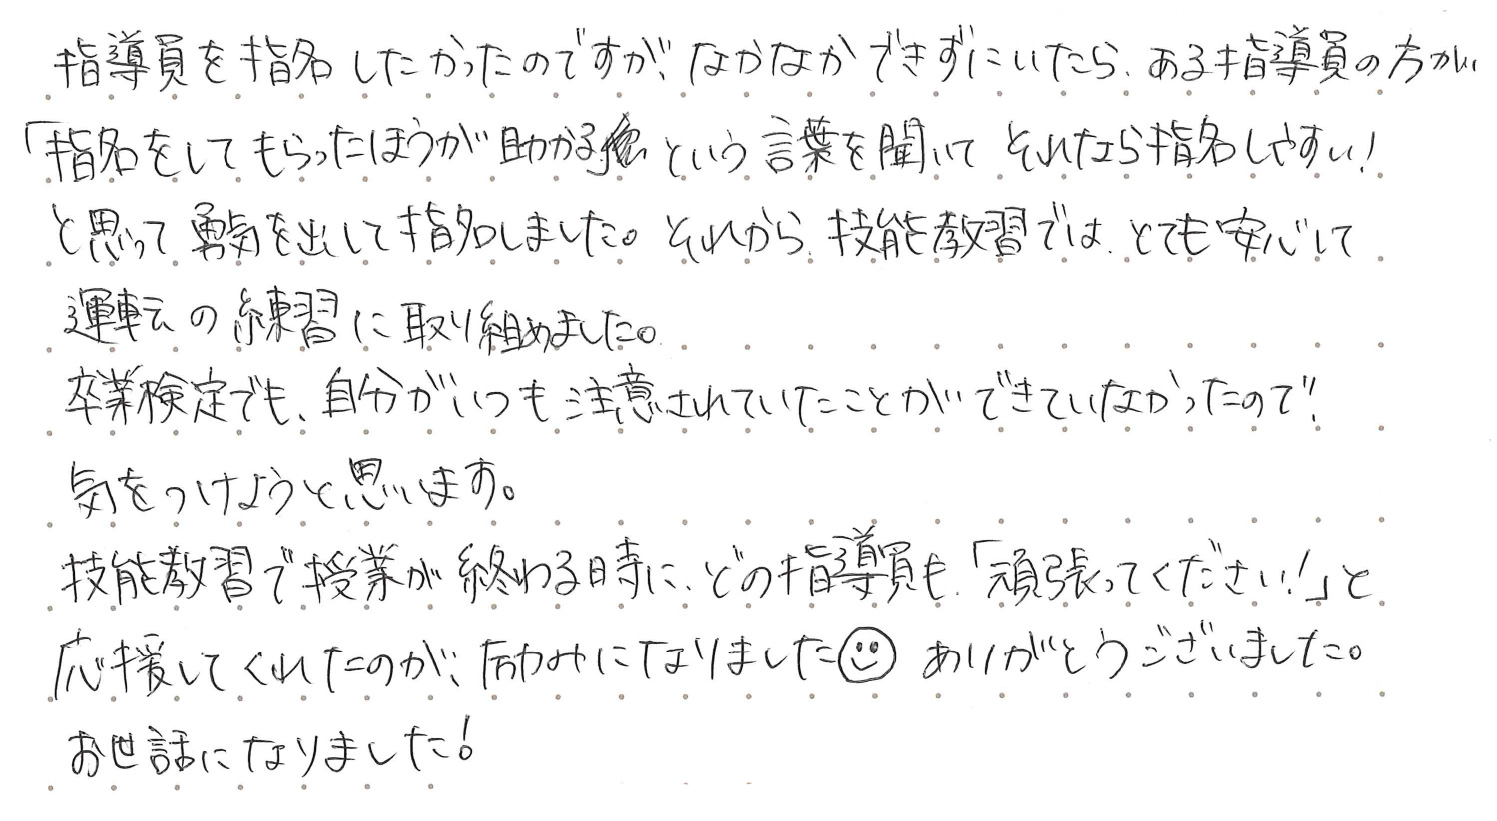 指導員を指名したかったのですが、なかなかできずにいたら、ある指導員の方が、
「指名をしてもらったほうが助かる という言葉を聞いて それなら指名しやすい!
と思って勇気を出して指名しました。それから、技能教習では、とても安心して
運転の練習に取り組めました。
卒業検定でも、自分がいつも注意されていたことができていなかったので、
気をつけようと思います。
技能教習で授業が終わる時に、どの指導員も「頑張ってください!」と
応援してくれたのが、励みになりました☺ ありがとうございました。
お世話になりました!